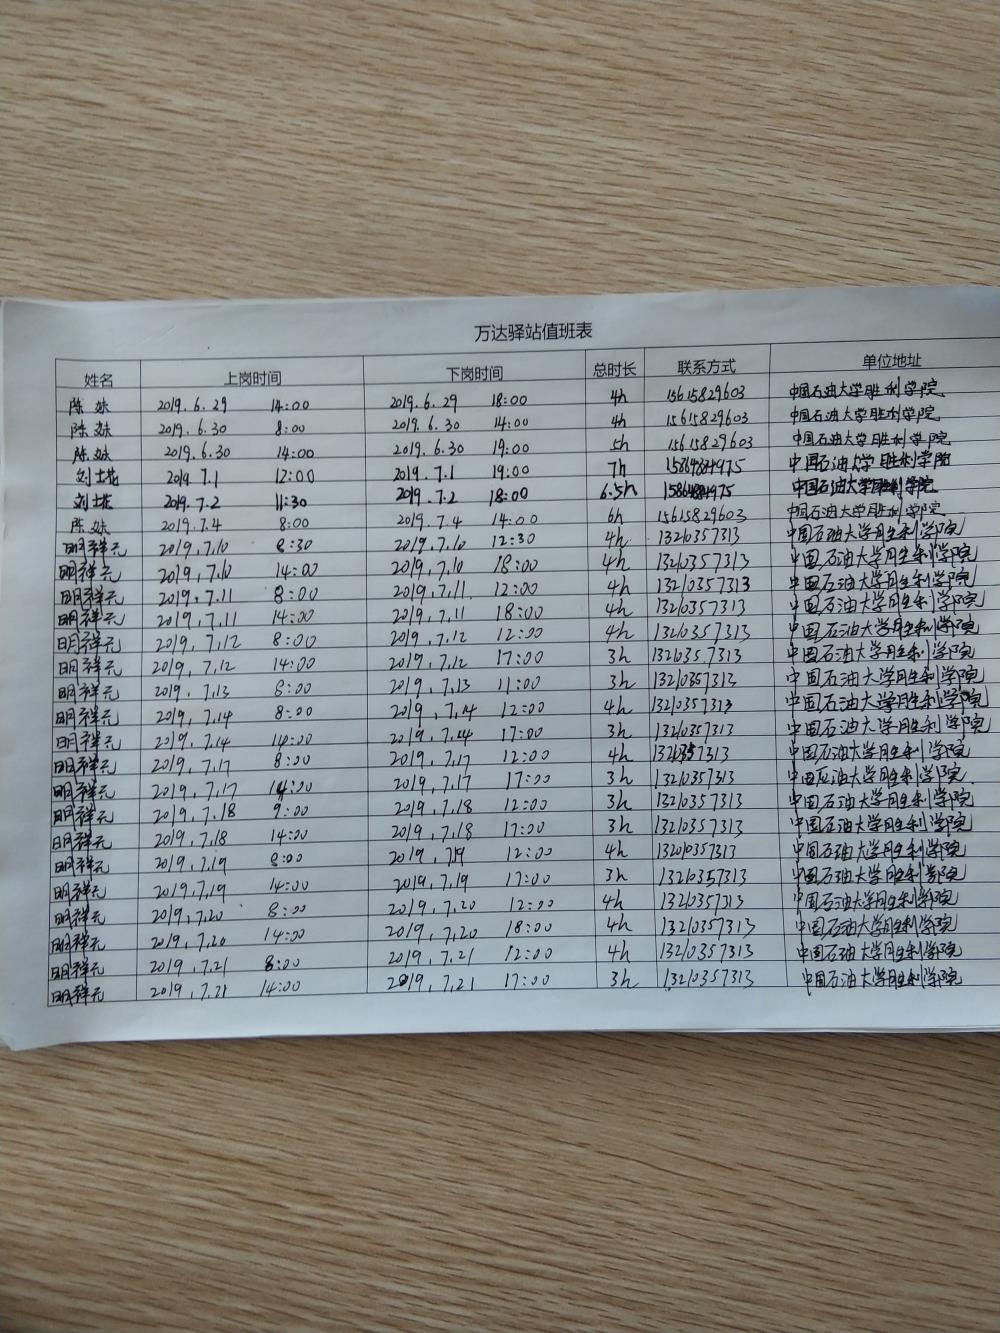 万达驿站值班表
姓名 上岗时间 下岗时间 总时长 联系方式 单位地址
陈妹 2019.6.29 14:00 2019.6.29 18:00 4h 15615829603 中国石油大学胜利学院
陈妹 2019.6.30 8:00 2019.6.30 14:00 4h 15615829603 中国石油大学胜利学院
陈妹 2019.6.30 14:00 2019.6.30 19:00 5h 15615829603 中国石油大学胜利学院
刘 2019 7.1 12:00 2019.7.1 19:00 7h 中国石油大学胜利学院
刘 2019.7.2 11:30 2019.7.2 18:00 6.5h 中国石油大学胜利学院
陈妹 2019.7.4 8:00 2019.7.4 14:00 6h 15615829603 中国石油大学胜利学院
明祥元 2019,7,10 8:30 2019,7,10 12:30 4h 13210357313 中国石油大学胜利学院
明祥元 2019,7,10 14:00 2019,7,10 18:00 4h 13210357313 中国石油大学胜利学院
明祥元 2019,7,11 8:00 2019,7,11 12:00 4h 13210357313 中国石油大学胜利学院
明祥元 2019,7,11 14:00 2019,7,11 18:00 4h 13210357313 中国石油大学胜利学院
明祥元 2019,7,12 8:00 2019,7,12 12:00 4h 13210357313 中国石油大学胜利学院
明祥元 2019,7,12 14:00 2019,7,12 17:00 3h 13210357313 中国石油大学胜利学院
明祥元 2019,7,13 8:00 2019,7,13 11:00 3h 13210357313 中国石油大学胜利学院
明祥元 2019,7,14 8:00 2019,7,14 12:00 4h 13210357313 中国石油大学胜利学院
明祥元 2019,7,14 14:00 2019,7,14 17:00 3h 13210357313 中国石油大学胜利学院
明祥元 2019,7,17 8:00 2019,7,17 12:00 4h 中国石油大学胜利学院
明祥元 2019,7,17 14:00 2019,7,17 17:00 3h 13210357313 中国石油大学胜利学院
明祥元 2019,7,18 9:00 2019,7,18 12:00 3h 13210357313 中国石油大学胜利学院
明祥元 2019,7,18 14:00 2019,7,18 17:00 3h 13210357313 中国石油大学胜利学院
明祥元 2019,7,19 8:00 2019,7,19 12:00 4h 13210357313 中国石油大学胜利学院
明祥元 2019,7,19 14:00 2019,7,19 17:00 3h 13210357313 中国石油大学胜利学院
明祥元 2019,7,20 8:00 2019,7,20 12:00 4h 13210357313 中国石油大学胜利学院
明祥元 2019,7,20 14:00 2019,7,20 18:00 4h 13210357313 中国石油大学胜利学院
明祥元 2019,7,21 8:00 2019,7,21 12:00 4h 13210357313 中国石油大学胜利学院
明祥元 2019,7,21 14:00 2019,7,21 17:00 3h 13210357313 中国石油大学胜利学院